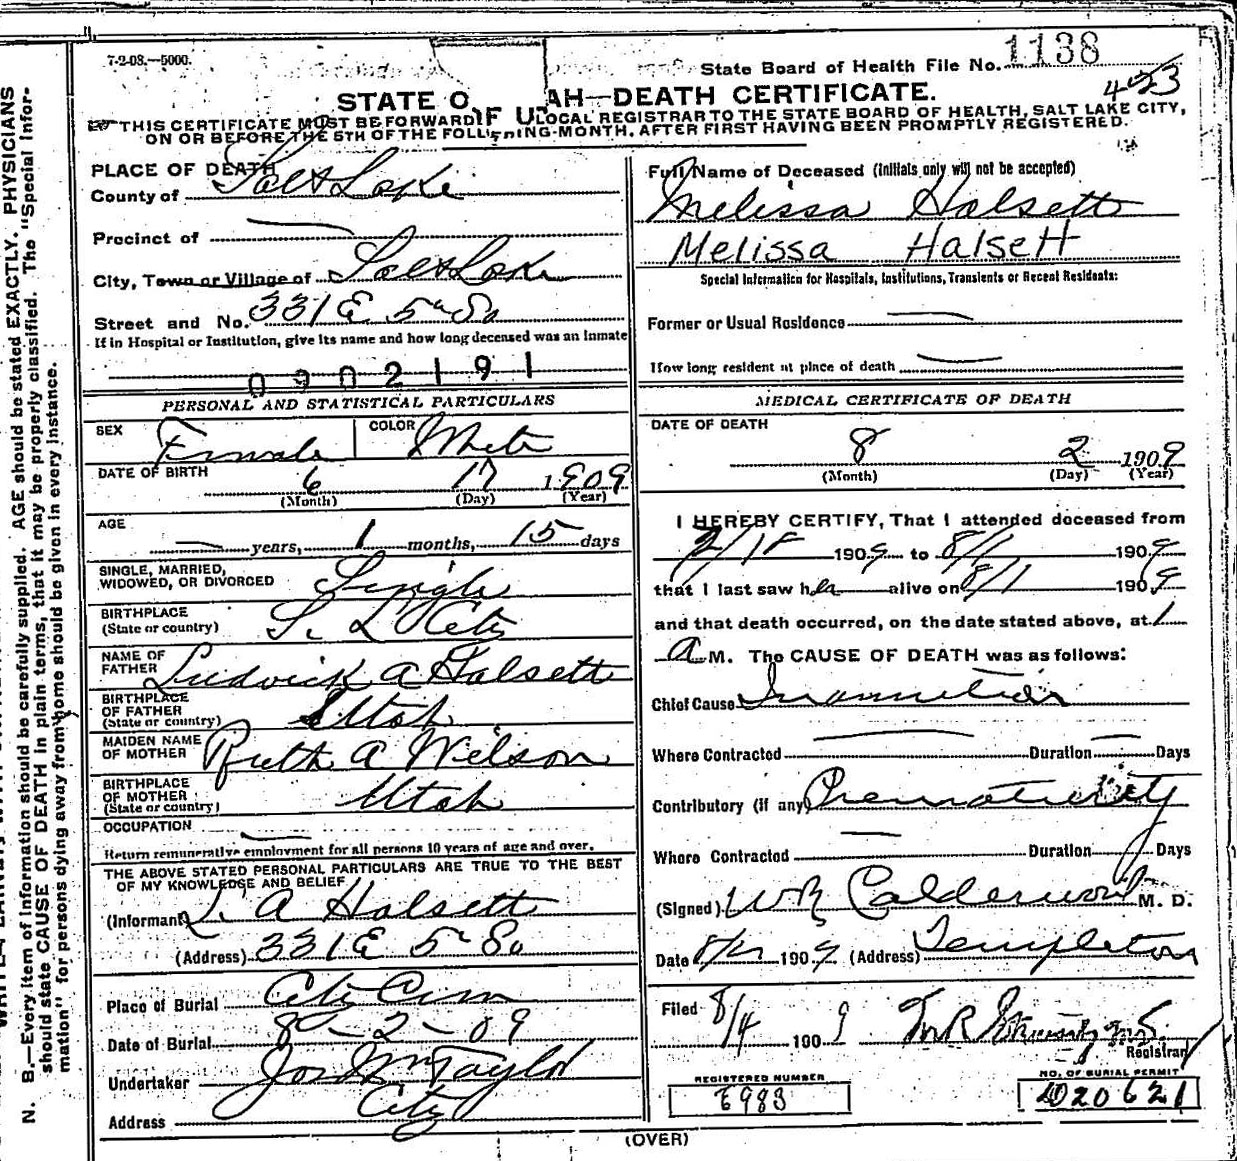 7-2-08.—5000.
State Board of Health File No. 1138
423
STATE OF UTAH—DEATH CERTIFICATE.
THIS CERTIFICATE MUST BE FORWARD LOCAL REGISTRAR TO THE STATE BOARD OF HEALTH, SALT LAKE CITY,
ON OR BEFORE THE 5TH OF THE FOLLOWING MONTH, AFTER FIRST HAVING BEEN PROMPTLY REGISTERED.
PLACE OF DEATH
County of Salt Lake
Precinct of —
City, Town or Village of Salt Lake
Street and No. 331 E 5th So
If in Hospital or Institution, give its name and how long deceased was an inmate
0902191
PERSONAL AND STATISTICAL PARTICULARS
SEX Female COLOR White
DATE OF BIRTH 6 17 1909
(Month) (Day) (Year)
AGE
— years, 1 months, 15 days
SINGLE, MARRIED,
WIDOWED, OR DIVORCED Single
BIRTHPLACE
(State or country) S. L City
NAME OF
FATHER Ludvick A Halsett
BIRTHPLACE
OF FATHER
(State or country) Utah
MAIDEN NAME
OF MOTHER Ruth A Wilson
BIRTHPLACE
OF MOTHER
(State or country) Utah
OCCUPATION —
Return remunerative employment for all persons 10 years of age and over.
THE ABOVE STATED PERSONAL PARTICULARS ARE TRUE TO THE BEST
OF MY KNOWLEDGE AND BELIEF
(Informant) L. A Halsett
(Address) 331 E 5 So
Place of Burial City Cem
Date of Burial 8-2-09
Undertaker Jos Wm Taylor
Address City
Full Name of Deceased (initials only will not be accepted)
Melissa Halsett
Melissa Halsett
Special Information for Hospitals, Institutions, Transients or Recent Residents:
Former or Usual Residence —
How long resident at place of death —
MEDICAL CERTIFICATE OF DEATH
DATE OF DEATH
8 2 1909
(Month) (Day) (Year)
I HEREBY CERTIFY, That I attended deceased from
1909 to 8/1 1909
that I last saw her alive on 8/1 1909
and that death occurred, on the date stated above, at 1
A M. The CAUSE OF DEATH was as follows:
Chief Cause Inannition
Where Contracted — Duration — Days
Contributory (if any) Prematurity
Where Contracted — Duration Days
(Signed) WR Calderwood M. D.
Date 1909 (Address) Templeton
Filed 8/4 1909
Registrar
REGISTERED NUMBER
E983
NO. OF BURIAL PERMIT
020621
(OVER)
N. B.—Every item of information should be carefully supplied. AGE should be stated EXACTLY. PHYSICIANS
should state CAUSE OF DEATH in plain terms, that it may be properly classified. The "Special Infor-
mation" for persons dying away from home should be given in every instance.